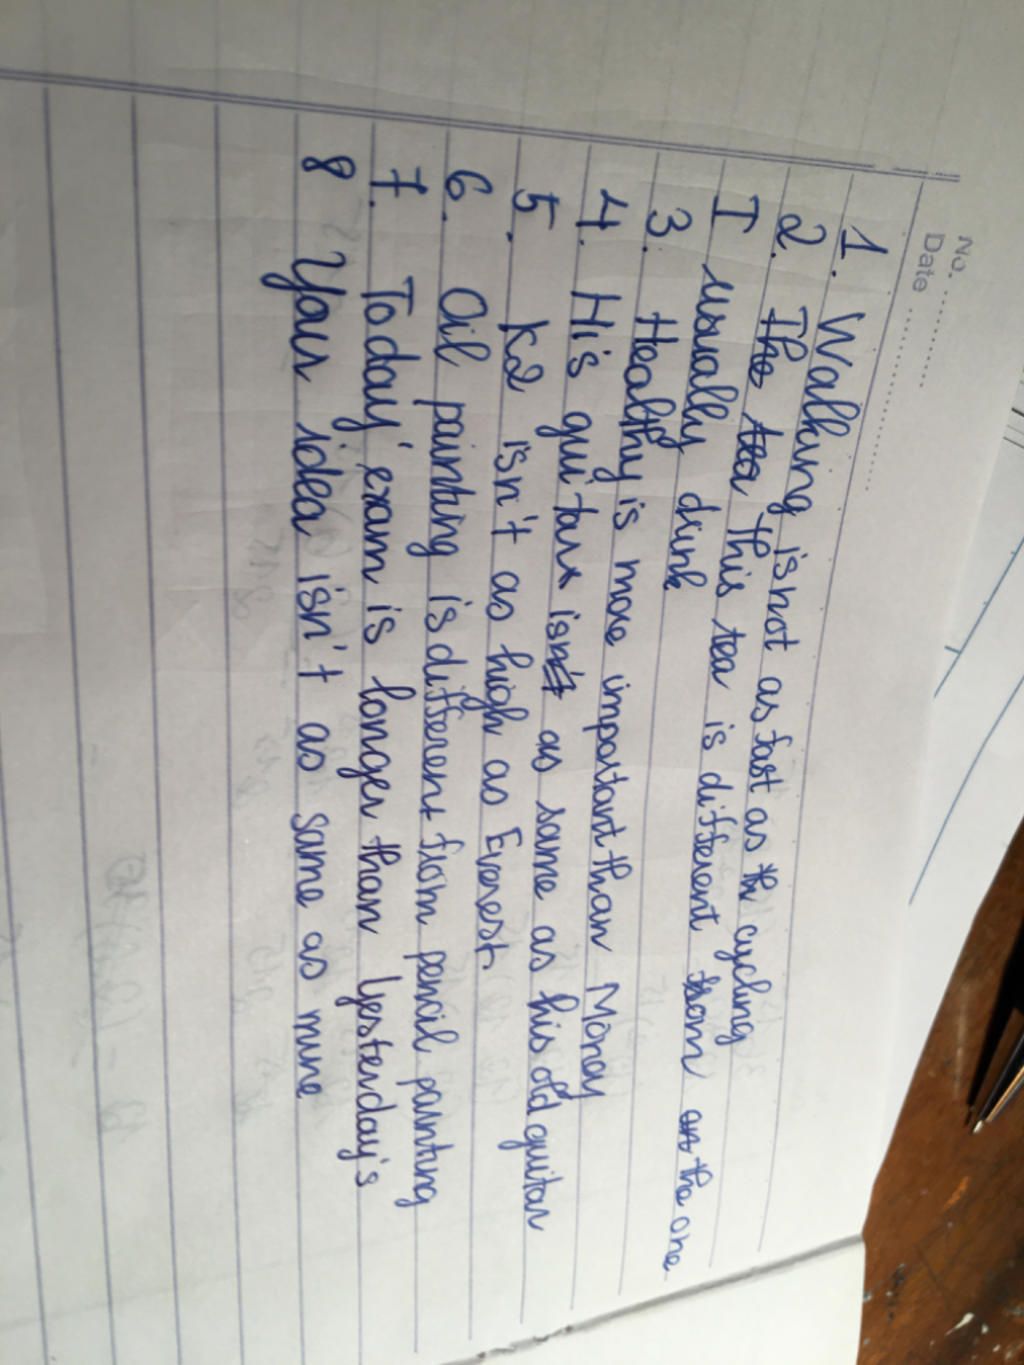 No.
Date
1. Walking is not as fast as th cycling
2. The tea this tea is different from as the one
I usually drink
3. Healthy is more important than Money
4. His guitar is as same as his old guitar
5. K2 isn't as high as Everest.
6. Oil painting is different from pencil painting
7. Today' exam is longer than yesterday's
8 Your idea isn't as same as mine